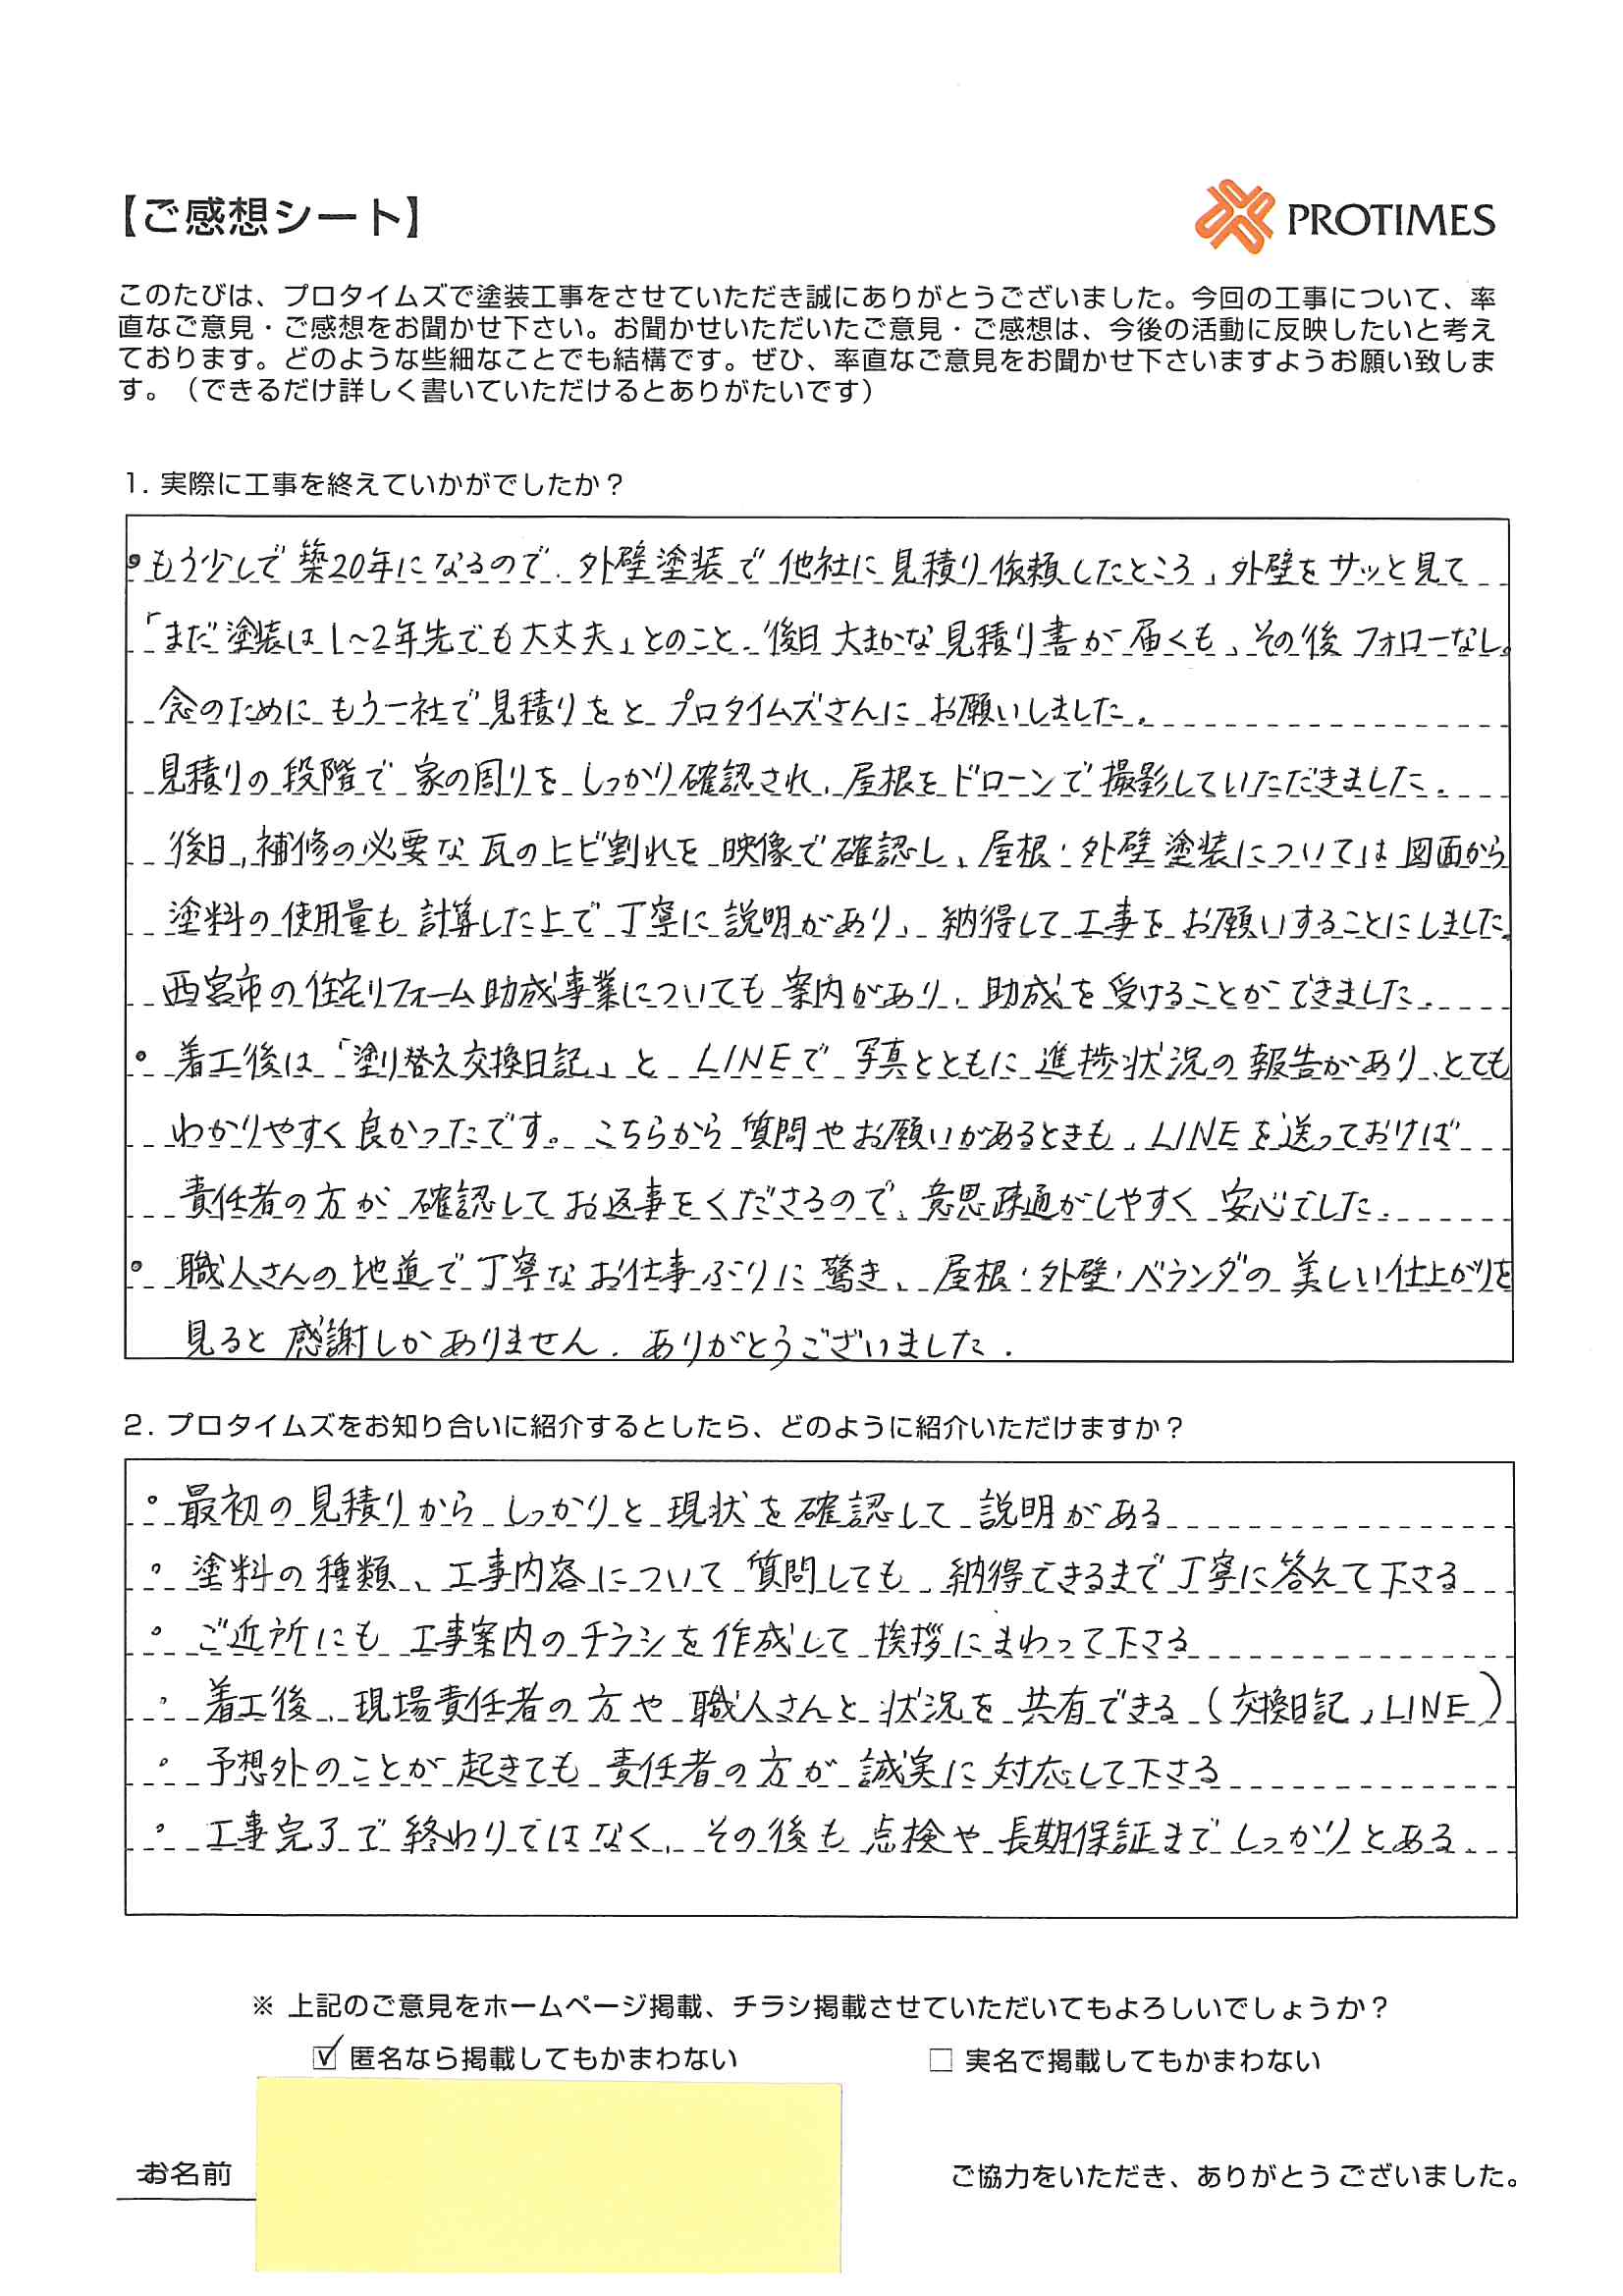 【ご感想シート】
PROTIMES
このたびは、プロタイムズで塗装工事をさせていただき誠にありがとうございました。今回の工事について、率
直なご意見・ご感想をお聞かせ下さい。お聞かせいただいたご意見・ご感想は、今後の活動に反映したいと考え
ております。どのような些細なことでも結構です。ぜひ、率直なご意見をお聞かせ下さいますようお願い致しま
す。（できるだけ詳しく書いていただけるとありがたいです）
1. 実際に工事を終えていかがでしたか？
・もう少しで築20年になるので、外壁塗装で他社に見積り依頼したところ、外壁をサッと見て
「まだ塗装は1〜2年先でも大丈夫」とのこと。後日大まかな見積り書が届くも、その後フォローなし。
念のためにもう一社で見積りをとプロタイムズさんにお願いしました。
見積りの段階で家の周りをしっかり確認され、屋根をドローンで撮影していただきました。
後日、補修の必要な瓦のヒビ割れを映像で確認し、屋根・外壁塗装については図面から
塗料の使用量も計算した上で丁寧に説明があり、納得して工事をお願いすることにしました。
西宮市の住宅リフォーム助成事業についても案内があり、助成を受けることができました。
・着工後は「塗り替え交換日記」とLINEで写真とともに進捗状況の報告があり、とても
わかりやすく良かったです。こちらから質問やお願いがあるときも、LINEを送っておけば
責任者の方が確認してお返事をくださるので、意思疎通がしやすく安心でした。
・職人さんの地道で丁寧なお仕事ぶりに驚き、屋根・外壁・ベランダの美しい仕上がりを
見ると感謝しかありません。ありがとうございました。
2. プロタイムズをお知り合いに紹介するとしたら、どのように紹介いただけますか？
・最初の見積りからしっかりと現状を確認して説明がある
・塗料の種類、工事内容について質問しても、納得できるまで丁寧に答えて下さる
・ご近所にも工事案内のチラシを作成して挨拶にまわって下さる
・着工後、現場責任者の方や職人さんと状況を共有できる（交換日記、LINE）
・予想外のことが起きても責任者の方が誠実に対応して下さる
・工事完了で終わりではなく、その後も点検や長期保証までしっかりとある。
※ 上記のご意見をホームページ掲載、チラシ掲載させていただいてもよろしいでしょうか？
☑ 匿名なら掲載してもかまわない □ 実名で掲載してもかまわない
お名前
ご協力をいただき、ありがとうございました。